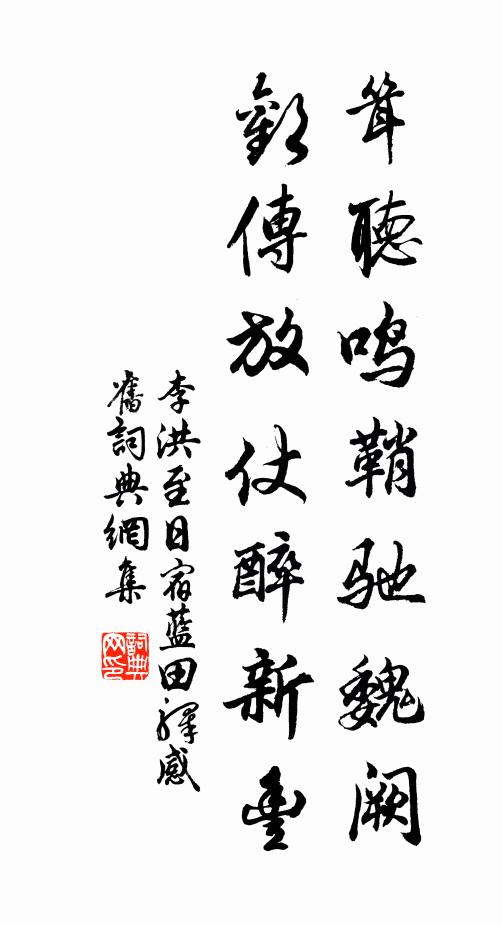 聳聽鳴鞘馳魏闕
歡傳放仗醉新豐
李洪至日宿藍田驛感
舊詞典網集
詞典
网印